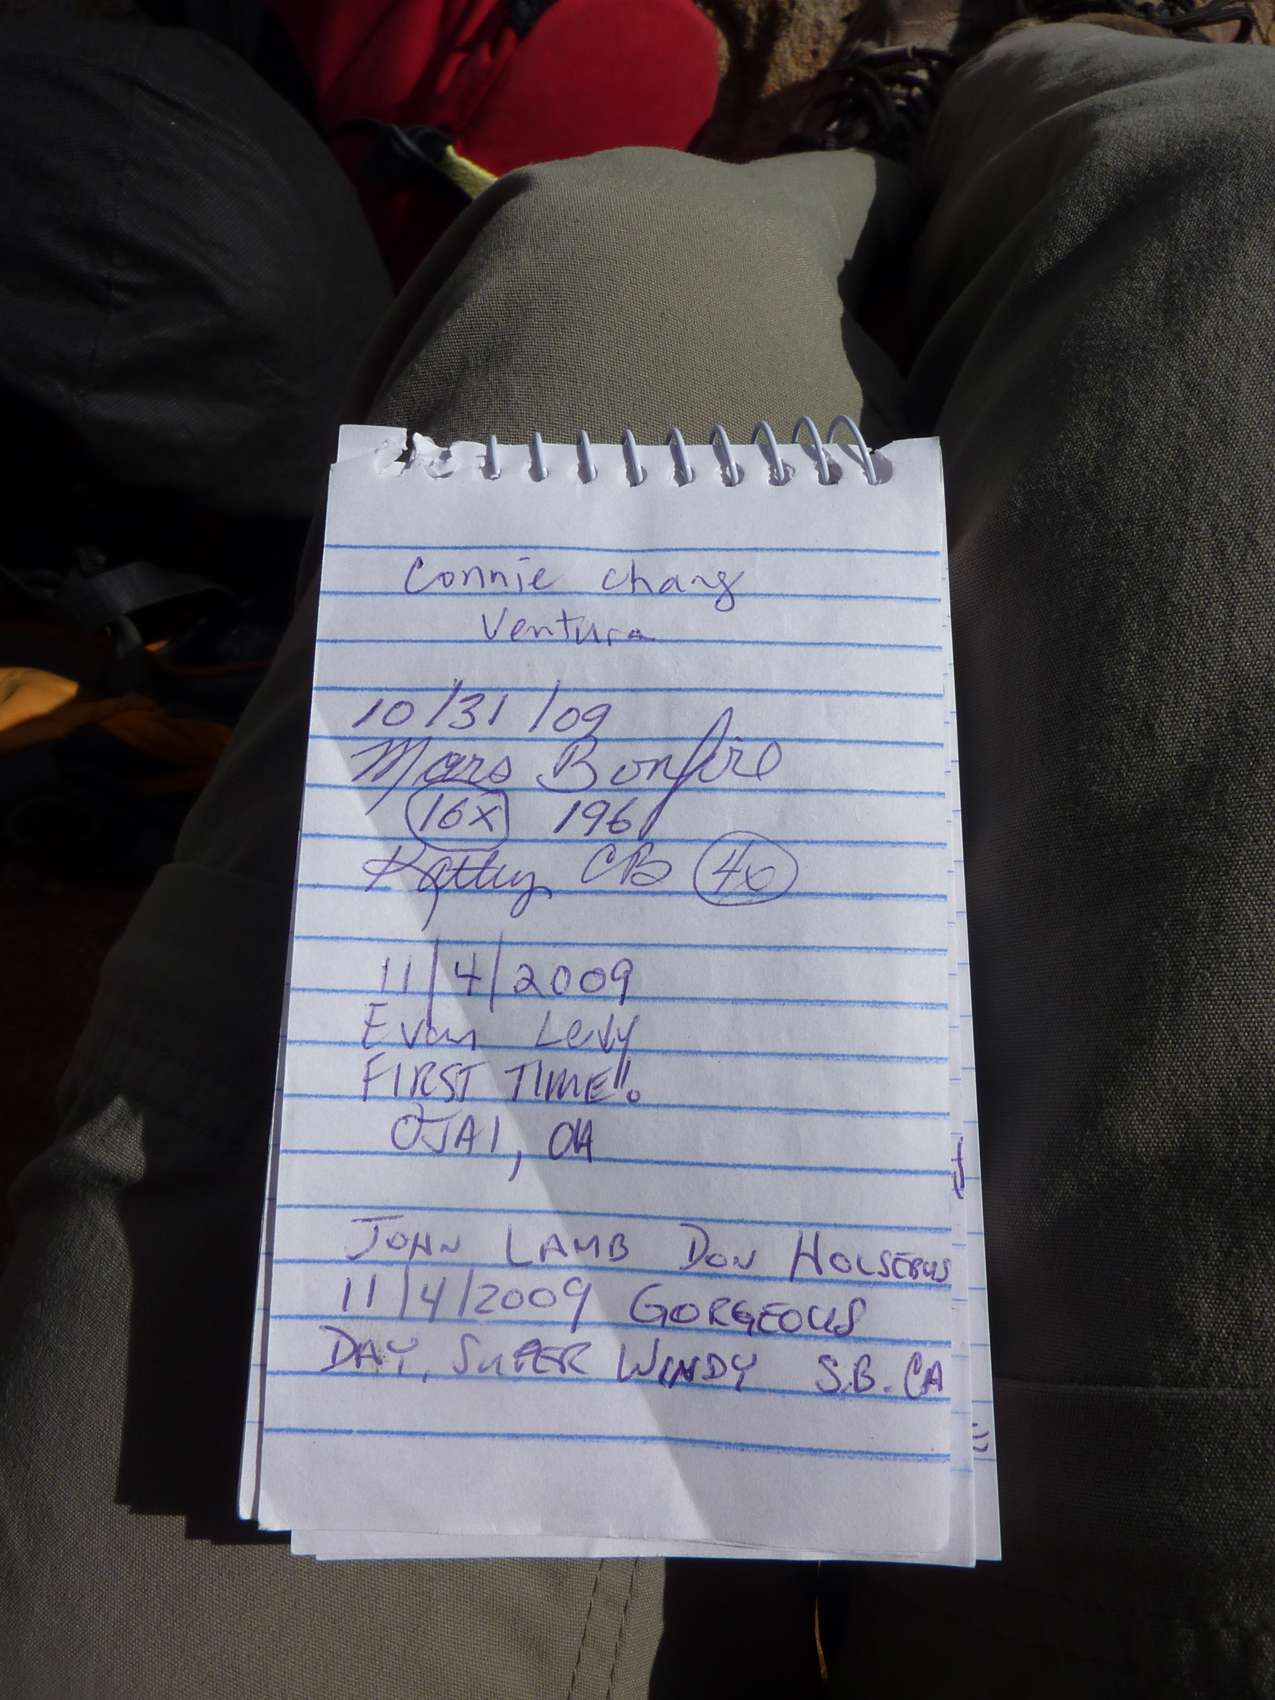 Connie Chang
Ventura
10/31/09
Mars Bonfire
16X 196
Kathy CB 40
11/4/2009
Evan Levy
FIRST TIME!!
OJAI, CA
JOHN LAMB DON HOLSEBUS
11/4/2009 GORGEOUS
DAY, SUPER WINDY S.B. CA